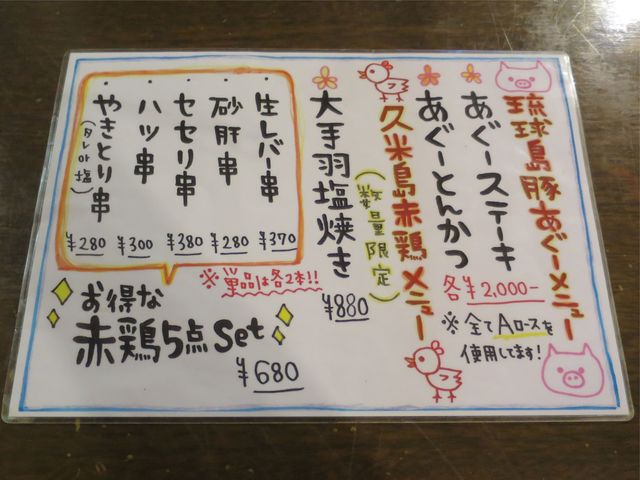 琉球島豚あぐーメニュー
あぐーステーキ
あぐーとんかつ
各¥2,000-
※全てAロースを
使用してます!
久米島赤鶏メニュー
(数量限定)
大手羽塩焼き
¥880
生レバー串
¥370
砂肝串
¥280
セセリ串
¥380
ハツ串
¥300
やきとり串
(タレor塩)
¥280
※単品は各2本!!
お得な
赤鶏5点Set
¥680